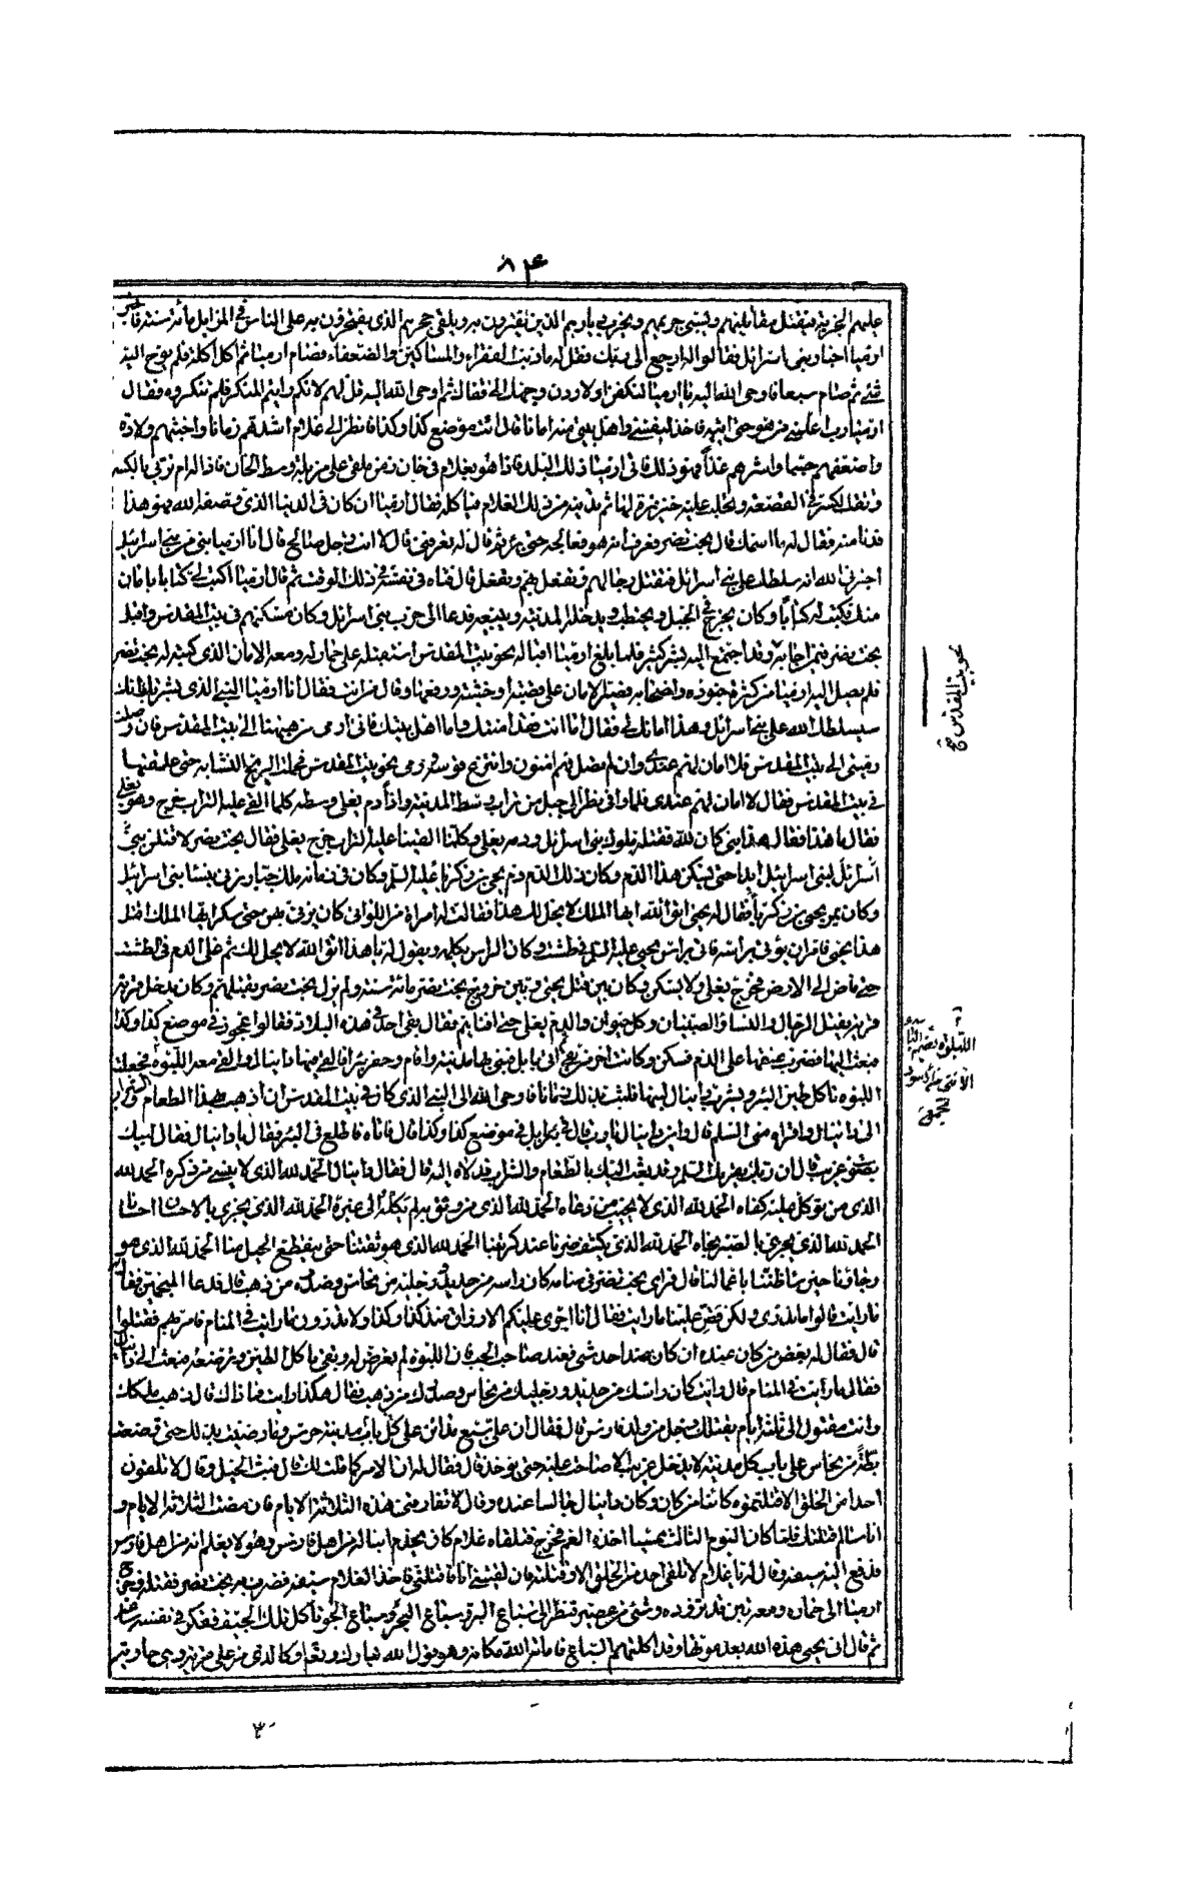 ۸۴
عليهم الجزية فيقتل مقاتليهم ويسبي حريمهم ويخرب ديارهم التي يغترون بها ويلقي حجرهم الذي يفتخرون به على الناس في المزابل مأة سنة فاخبر
ارميا احبار بني اسرائيل فقالوا له ارجع الى ربك فقل له ما ذنب الفقراء والمساكين والضعفاء فصام ارميا ثم اكل اكلة فلم يوح اليه
شئ ثم صام سبعا فاوحى الله اليه يا ارميا لتكفن او لاردن وجهك الى قفاك ثم اوحى الله اليه قل لهم لانكم رايتم المنكر فلم تنكروه فقال
ارميا رب اعلمني من هو حتى آتيه فآخذ لنفسي واهل بيتي منه امانا قال ائت موضع كذا وكذا فانظر الى غلام اشدهم زمانا واخبثهم ولادة
واضعفهم جسما واشرهم غذاء فهو ذلك فاتى ارميا ذلك البلد فاذا هو بغلام في خان زمن ملقى على مزبلة وسط الخان فاذا له ام تربي بالكسر
وتفت الكسر في القصعة وتحلب عليه خنزيرة لها ثم تدنيه من ذلك الغلام فياكله فقال ارميا ان كان في الدنيا الذي وصفه الله فهو هذا
فدنا منه فقال له ما اسمك قال بخت نصر فعرف انه هو فعالجه حتى برئ ثم قال له تعرفني قال لا انت رجل صالح قال انا ارميا نبي بني اسرائيل
اخبرني الله انه سيسلطك على بني اسرائيل فتقتل رجالهم وتفعل بهم وتفعل قال فتاه في نفسه في ذلك الوقت ثم قال ارميا اكتب لي كتابا بامان
منك فكتب له كتابا وكان يخرج في الجبل ويحتطب ويدخل المدينة ويبيعه فدعا الى حرب بني اسرائيل وكان مسكنهم في بيت المقدس واقبل
بخت نصر فيمن اجابه وقد اجتمع اليه بشر كثير فلما بلغ ارميا اقباله نحو بيت المقدس استقبله على حمار له ومعه الامان الذي كتبه له بخت نصر
فلم يصل اليه ارميا من كثرة جنوده واصحابه فصير الامان على قصبة او خشبة ورفعها وقال من انت فقال انا ارميا النبي الذي بشرتك بانك
سيسلطك الله على بني اسرائيل وهذا امانك لي فقال اما انت فقد امنتك واما اهل بيتك فاني ارمي من ههنا الى بيت المقدس فان وصلت
رميتي الى بيت المقدس فلا امان لهم عندي وان لم تصل فهم امنون وانتزع قوسه ورمى نحو بيت المقدس فحملت الريح النشابة حتى علقتها
في بيت المقدس فقال لا امان لهم عندي فلما وافى نظر الى جبل من تراب وسط المدينة واذا دم يغلي وسطه كلما القي عليه التراب خرج وهو يغلي
فقال ما هذا فقال هذا نبي كان لله فقتله ملوك بني اسرائيل ودمه يغلي وكلما القينا عليه التراب خرج يغلي فقال بخت نصر لاقتلن بني
اسرائيل ابدا حتى يسكن هذا الدم وكان ذلك الدم دم يحيى بن زكريا عليه السلم وكان في زمانه ملك جبار يزني بنساء بني اسرائيل
وكان يمر بيحيى بن زكريا فقال له يحيى اتق الله ايها الملك لا يحل لك هذا فقالت له امراة من اللواتي كان يزني بهن حتى سكر ايها الملك اقتل
هذا يحيى فامر ان يؤتى براسه فاتي براس يحيى عليه السلم في طشت وكان الراس يكلمه ويقول له يا هذا اتق الله لا يحل لك ثم غلى الدم في الطشت
حتى فاض الى الارض فخرج يغلي ولا يسكن وكان بين قتل يحيى وبين خروج بخت نصر مائة سنة ولم يزل بخت نصر يقتلهم وكان يدخل قرية
قرية فيقتل الرجال والنساء والصبيان وكل حيوان والدم يغلي حتى افناهم فقال بقي احد في هذه البلاد فقالوا عجوز في موضع كذا وكذا
فبعث اليها فضرب عنقها على الدم فسكن وكانت اخر من بقي ثم اتى بابل فبنى بها مدينة واقام وحفر بئرا فالقى فيها دانيال والقى معه اللبوة فجعلت
اللبوة تاكل طين البئر ويشرب دانيال لبنها فلبث بذلك زمانا فاوحى الله الى النبي الذي كان في بيت المقدس ان اذهب بهذا الطعام والشراب
الى دانيال واقراه مني السلم قال واين دانيال يا رب قال في بئر بابل في موضع كذا وكذا قال فاتاه فاطلع في البئر فقال يا دانيال فقال لبيك
صوت غريب قال ان ربك يقرئك السلم وقد بعث اليك بالطعام والشراب فدلاه اليه قال فقال دانيال الحمد لله الذي لا ينسى من ذكره الحمد لله
الذي من توكل عليه كفاه الحمد لله الذي لا يخيب من دعاه الحمد لله الذي من وثق به لم يكله الى غيره الحمد لله الذي يجزي بالاحسان احسانا
الحمد لله الذي يجزي بالصبر نجاة الحمد لله الذي يكشف ضرنا عند كربتنا الحمد لله الذي هو ثقتنا حين ينقطع الحيل منا الحمد لله الذي هو
رجاؤنا حين ساء ظننا باعمالنا قال فراى بخت نصر في منامه كان راسه من حديد ورجليه من نحاس وصدره من ذهب قال فدعا المنجمين فقال لهم
ما رايت قالوا ما ندري ولكن قص علينا ما رايت فقال انا اجري عليكم الارزاق منذ كذا وكذا ولا تدرون ما رايت في المنام فامر بهم فقتلوا
قال فقال له بعض من كان عنده ان كان عند احد شئ فعند صاحب الجب فان اللبوة لم تعرض له وهي تاكل الطين وترضعه فبعث الى دانيال
فقال ما رايت في المنام قال رايت كان راسك من حديد ورجليك من نحاس وصدرك من ذهب فقال هكذا رايت فما ذاك قال قد ذهب ملكك
وانت مقتول الى ثلثة ايام يقتلك رجل من ولد فارس قال فقال ان علي سبع مدائن على كل باب مدينة حرس وما رضيت بذلك حتى وضعت
بطة من نحاس على باب كل مدينة لا يدخل غريب الا صاحت عليه حتى يؤخذ قال فقال له ان الامر كما قلت لك قال فبث الخيل وقال لا تلقون
احدا من الخلق الا قتلتموه كائنا من كان وكان دانيال جالسا عنده وقال لا تفارقني هذه الثلاثة الايام فان مضت الثلاثة الايام و
انا سالم قتلتك فلما كان اليوم الثالث ممسيا اخذه الغم فخرج فتلقاه غلام كان يخدم ابنا له من اهل فارس وهو لا يعلم انه من اهل فارس
فدفع اليه سيفه وقال له يا غلام لا تلقى احدا من الخلق الا وقتلته وان لقيتني انا فاقتلني فاخذ الغلام سيفه فضرب به بخت نصر فقتله وخرج
ارميا الى حماره ومعه تين قد تزوده وشئ من عصير فنظر الى سباع البر وسباع البحر وسباع الجو تاكل تلك الجيف ففكر في نفسه ساعة
ثم قال انى يحيى هذه الله بعد موتها وقد اكلتهم السباع فاماته الله مكانه وهو قول الله تبارك وتعالى او كالذي مر على قرية وهي خاوية
نحو بيت المقدس خ
اللبوة بضم الباء
الانثى من الاسود